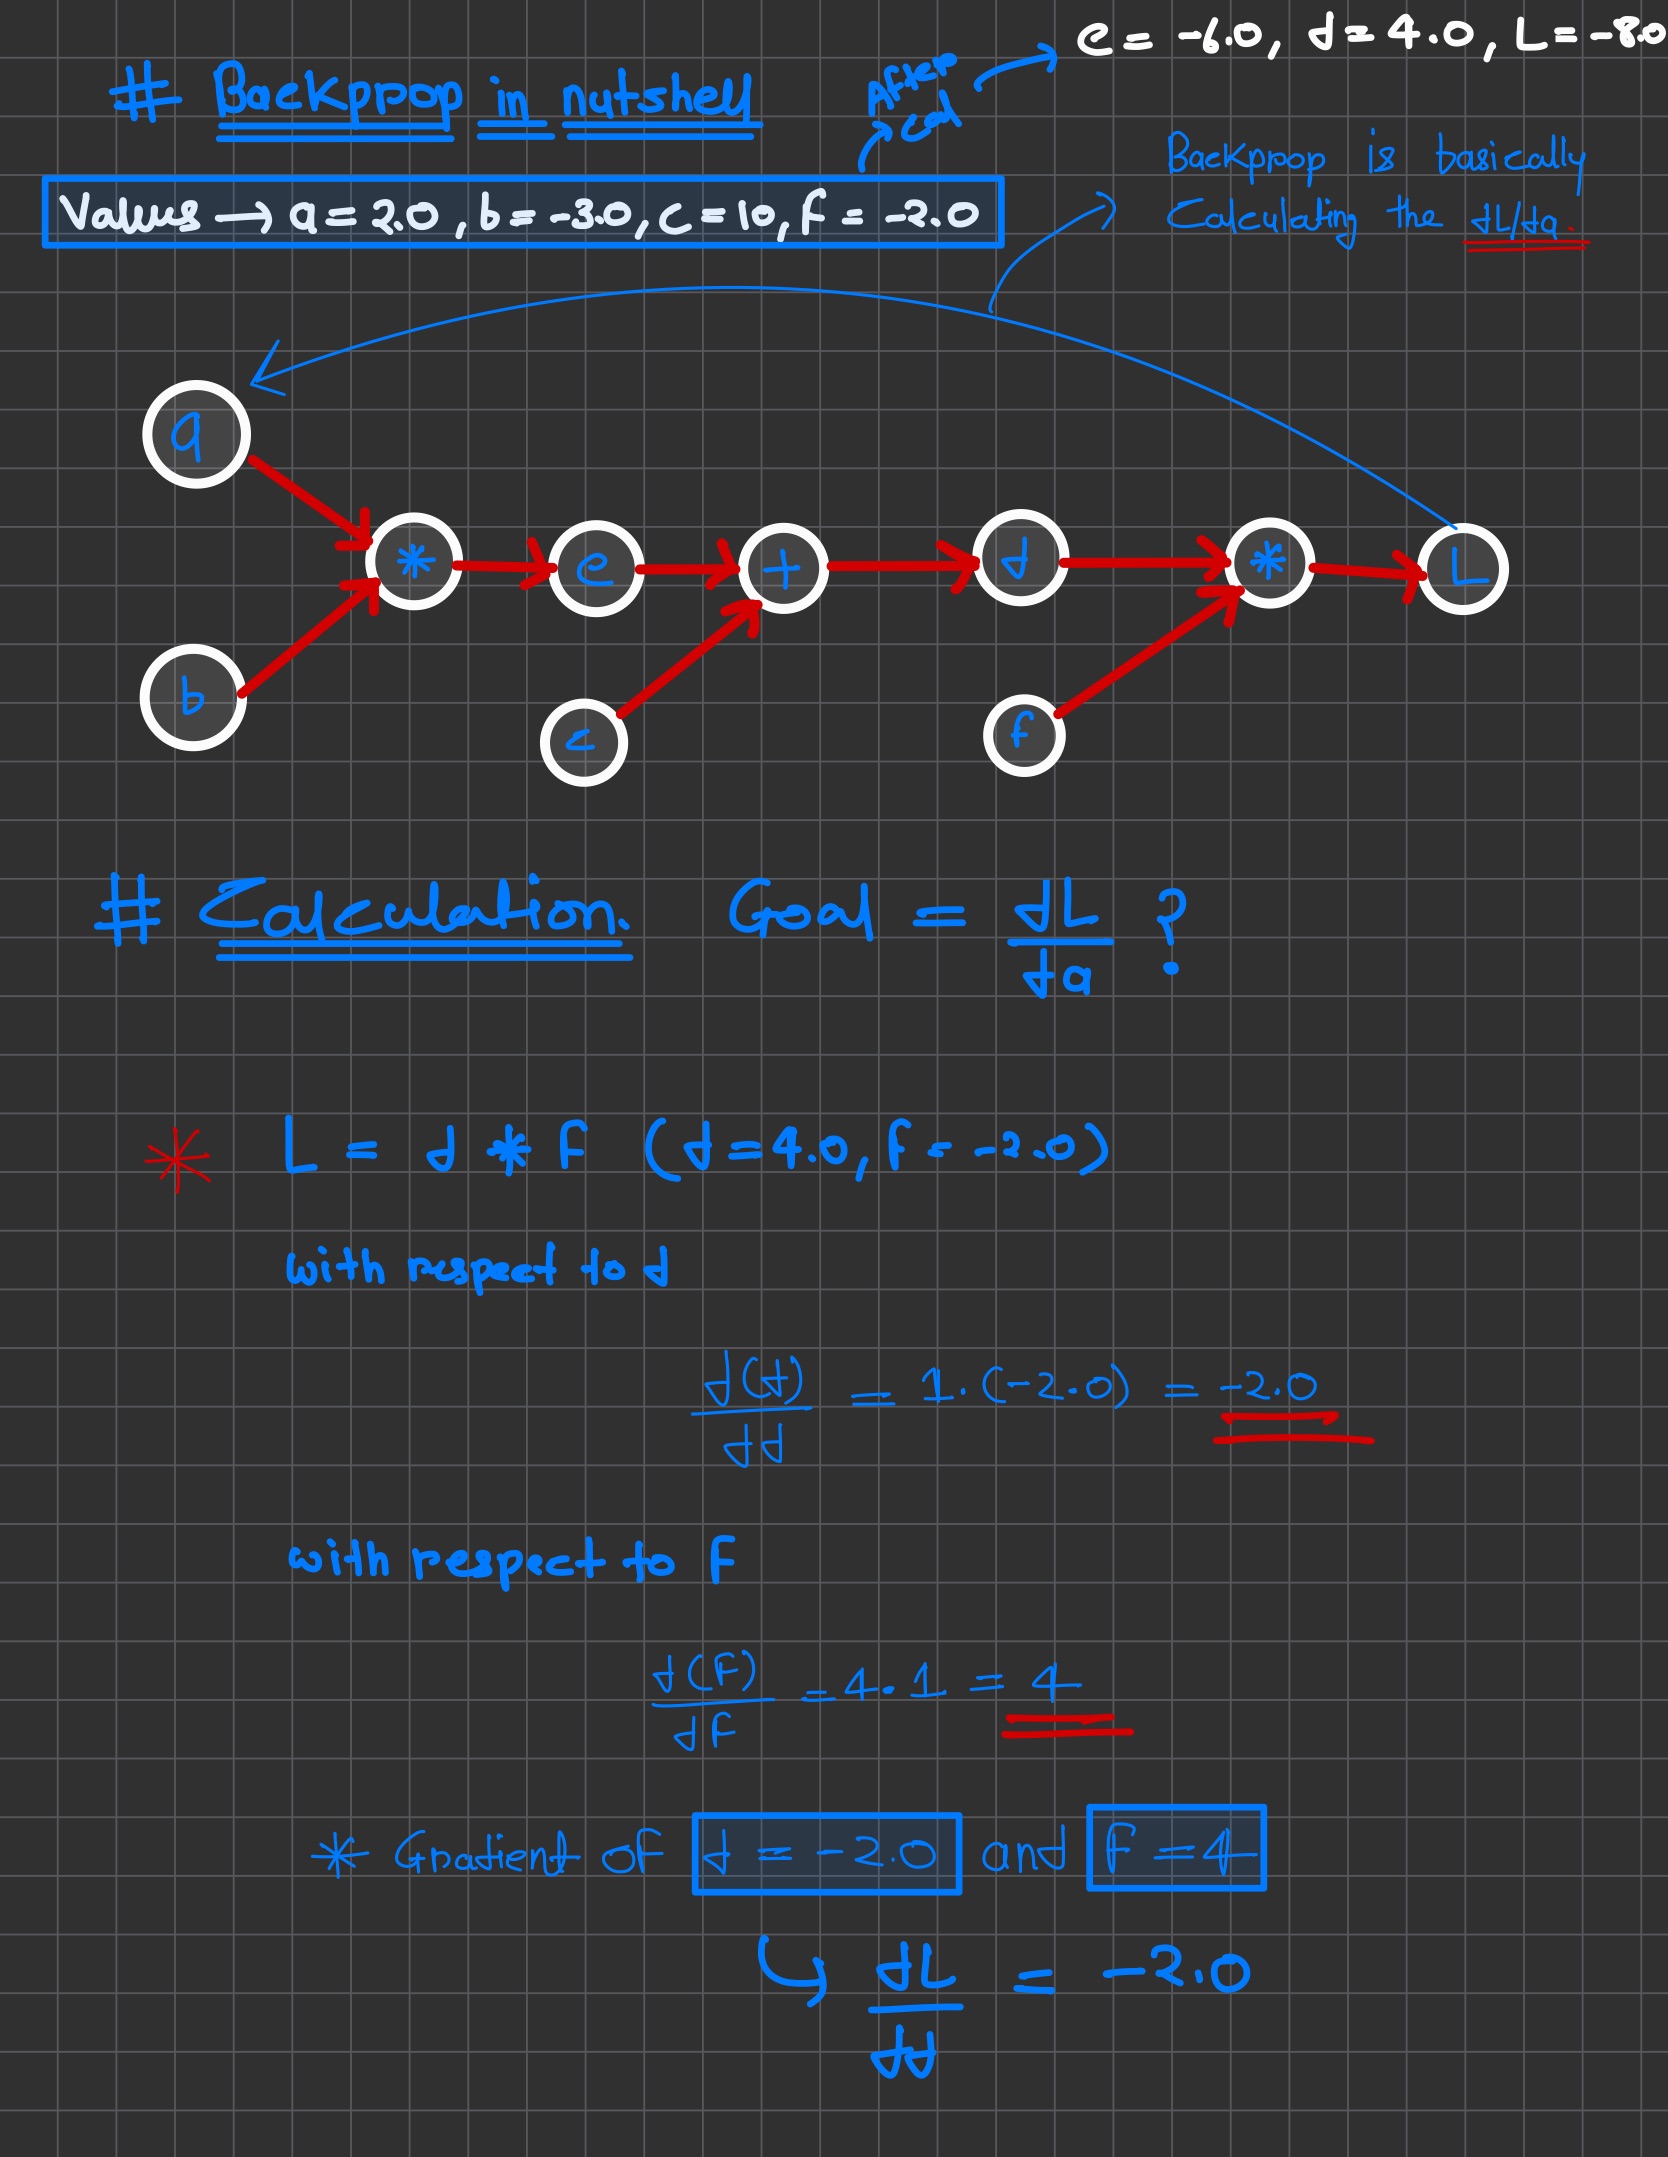 e = -6.0, d = 4.0, L = -8.0
# Backprop in nutshell
After
Cal
Values → a = 2.0, b = -3.0, c = 10, f = -2.0
Backprop is basically
Calculating the dL/da.
a
b
*
e
+
d
*
L
c
f
# Calculation. Goal = dL/da ?
* L = d * F (d = 4.0, f = -2.0)
with respect to d
d(d)/dd = 1.(-2.0) = -2.0
with respect to F
d(F)/dF = 4.1 = 4
* Gradient of d = -2.0 and F = 4
↳ dL/dd = -2.0